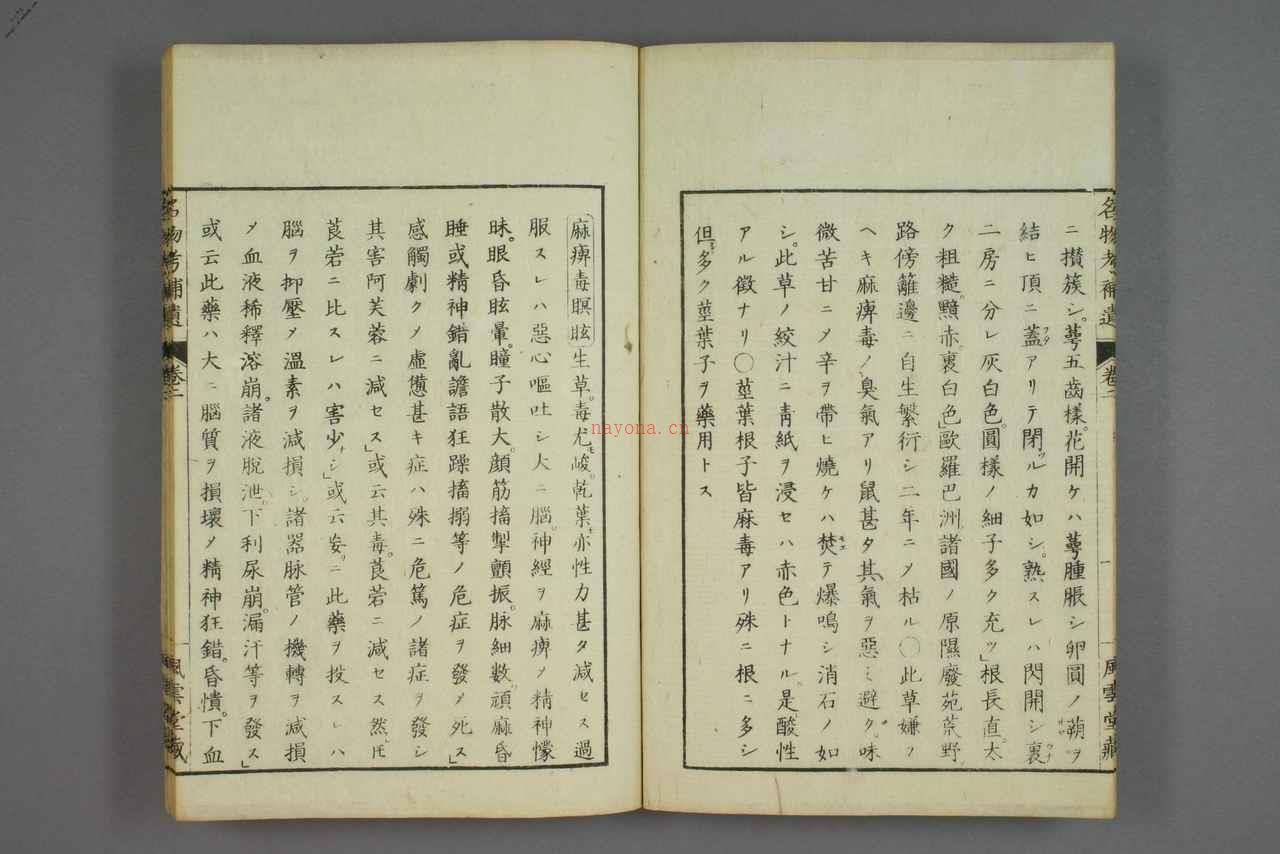 名物考補遺 卷二 一 風雲堂藏
ニ攅簇シ。萼五齒樣。花開ケハ萼腫脹シ卵圓ノ蒴ヲ
結ヒ頂ニ蓋アリテ閉ツルカ如シ。熟スレハ閃開シ裏
二房ニ分レ灰白色。圓樣ノ細子多ク充ツ」根長直。太
ク粗糙。黯赤裏白色」歐羅巴洲諸國ノ原隰廢苑荒野
路傍籬邊ニ自生繁衍シ二年ニメ枯ル〇此草嫌フ
ヘキ麻痺毒ノ臭氣アリ鼠甚タ其氣ヲ惡ミ避ク。味
微苦甘ニメ辛ヲ帶ヒ燒ケハ焚テ爆鳴シ消石ノ如
シ。此草ノ絞汁ニ靑紙ヲ浸セハ赤色トナル。是酸性
アル徵ナリ〇莖葉根子皆麻毒アリ殊ニ根ニ多シ
但多ク莖葉子ヲ藥用トス
麻痺毒瞑眩 生草。毒尤峻。乾葉亦性力甚タ減セス過
服スレハ惡心嘔吐シ大ニ腦。神經ヲ麻痺メ精神懞
昧。眼昏眩暈。瞳子散大。顔筋搐掣顫振。脉細數。頑麻昏
睡或精神錯亂譫語狂躁搐搦等ノ危症ヲ發メ死ス」
感觸劇クメ虛憊甚キ症ハ殊ニ危篤ノ諸症ヲ發シ
其害阿芙蓉ニ減セス」或云其毒。莨菪ニ減セス然𪜈
莨菪ニ比スレハ害少シ」或云妄。ニ此藥ヲ投スレハ
腦ヲ抑壓メ溫素ヲ減損シ。諸器脉管ノ機轉ヲ減損
メ血液稀釋溶崩。諸液脫泄。下利尿崩。漏汗等ヲ發ス」
或云此藥ハ大ニ腦質ヲ損壞メ精神狂錯。昏憒。下血
名物考補遺 卷二 風雲堂藏
nayona.cn